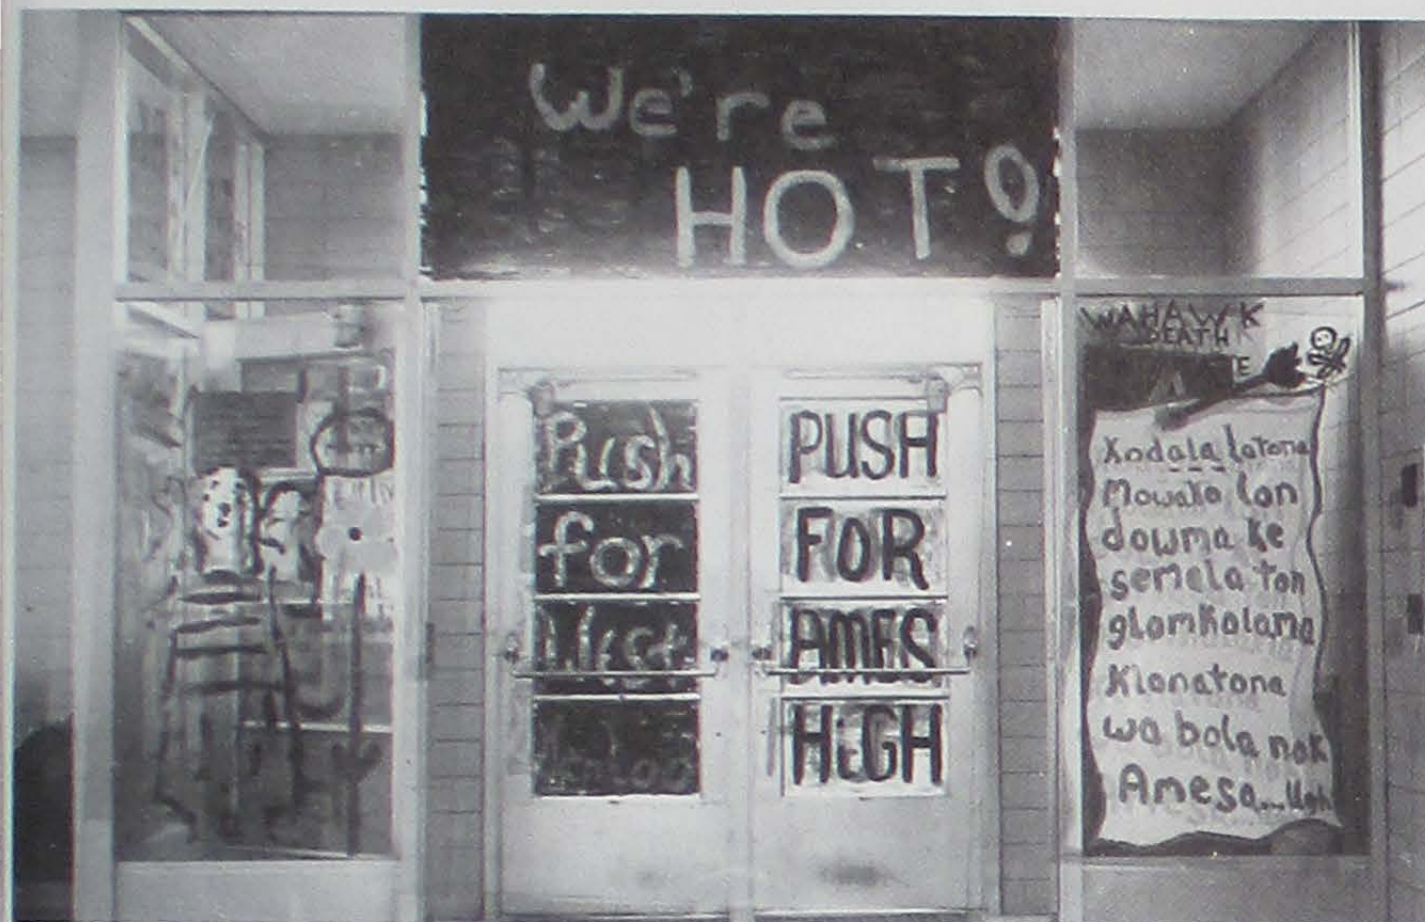 We're
HOT!
Push
for
West
PUSH
FOR
AMES
HiGH
WAHAWK
DEATH
Kodala latona
Mowako lon
dowma ke
semela ton
glomkolama
Klonatona
wa bola nok
Amesa...Ugh